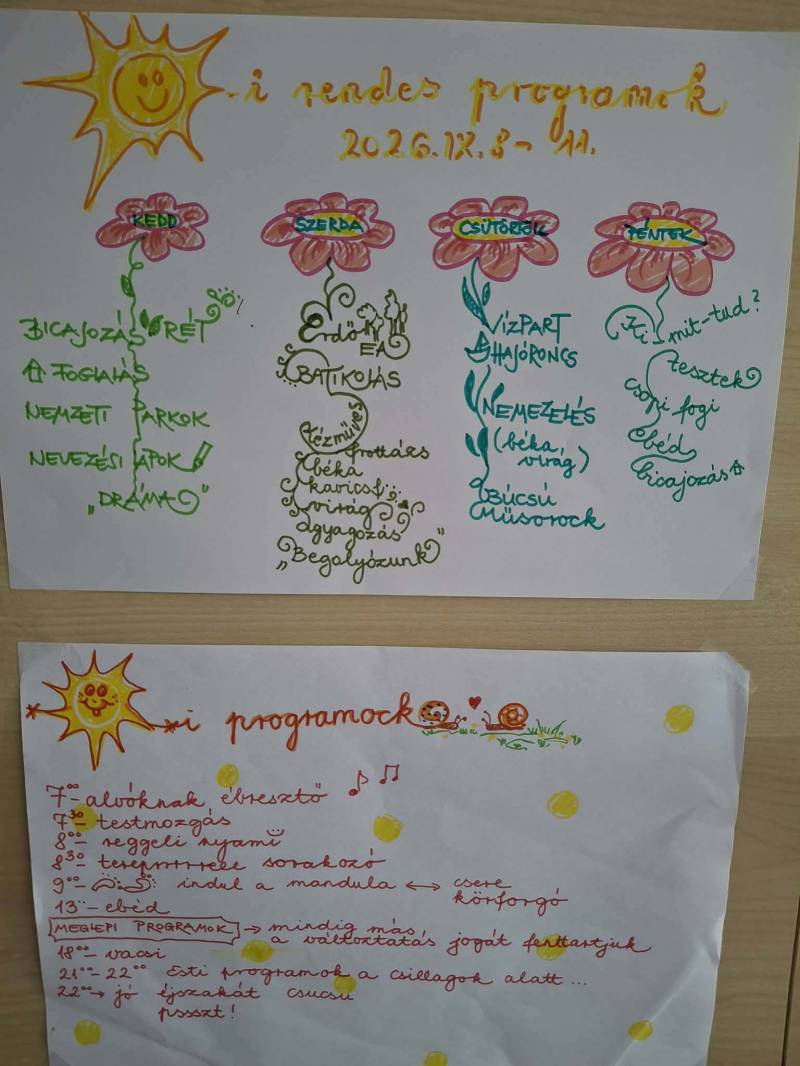 -i rendes programok
2026.IX.8-11.
KEDD
BICAJOZÁS RÉT
FOGLALÁS
NEMZETI PARKOK
NEVEZÉSI LAPOK
„DRÁMA"
SZERDA
Erdő
EA
BATIKOLÁS
Kézműves
frottázs
béka
kavicsf
virág
agyagozás
„Begalyózunk"
CSÜTÖRTÖK
VÍZPART
HAJÓRONCS
NEMEZELÉS
(béka
virág)
BÚCSÚ
Műsorock
PÉNTEK
Ki-mit-tud?
tesztek
csopi fogi
ebéd
bicajozás
-i programock
7⁰⁰- alvóknak ébresztő
7³⁰- testmozgás
8⁰⁰- reggeli nyami
8³⁰- tereprrrrrele sorakozó
9⁰⁰- indul a mandula ↔ csere
körforgó
13⁰⁰-ebéd
MEGLEPI PROGRAMOK → mindig más
a változtatás jogát fenttartjuk
18⁰⁰- vacsi
21⁰⁰-22⁰⁰ Esti programok a csillagok alatt...
22⁰⁰→ jó éjszakát csucsu
psssst!